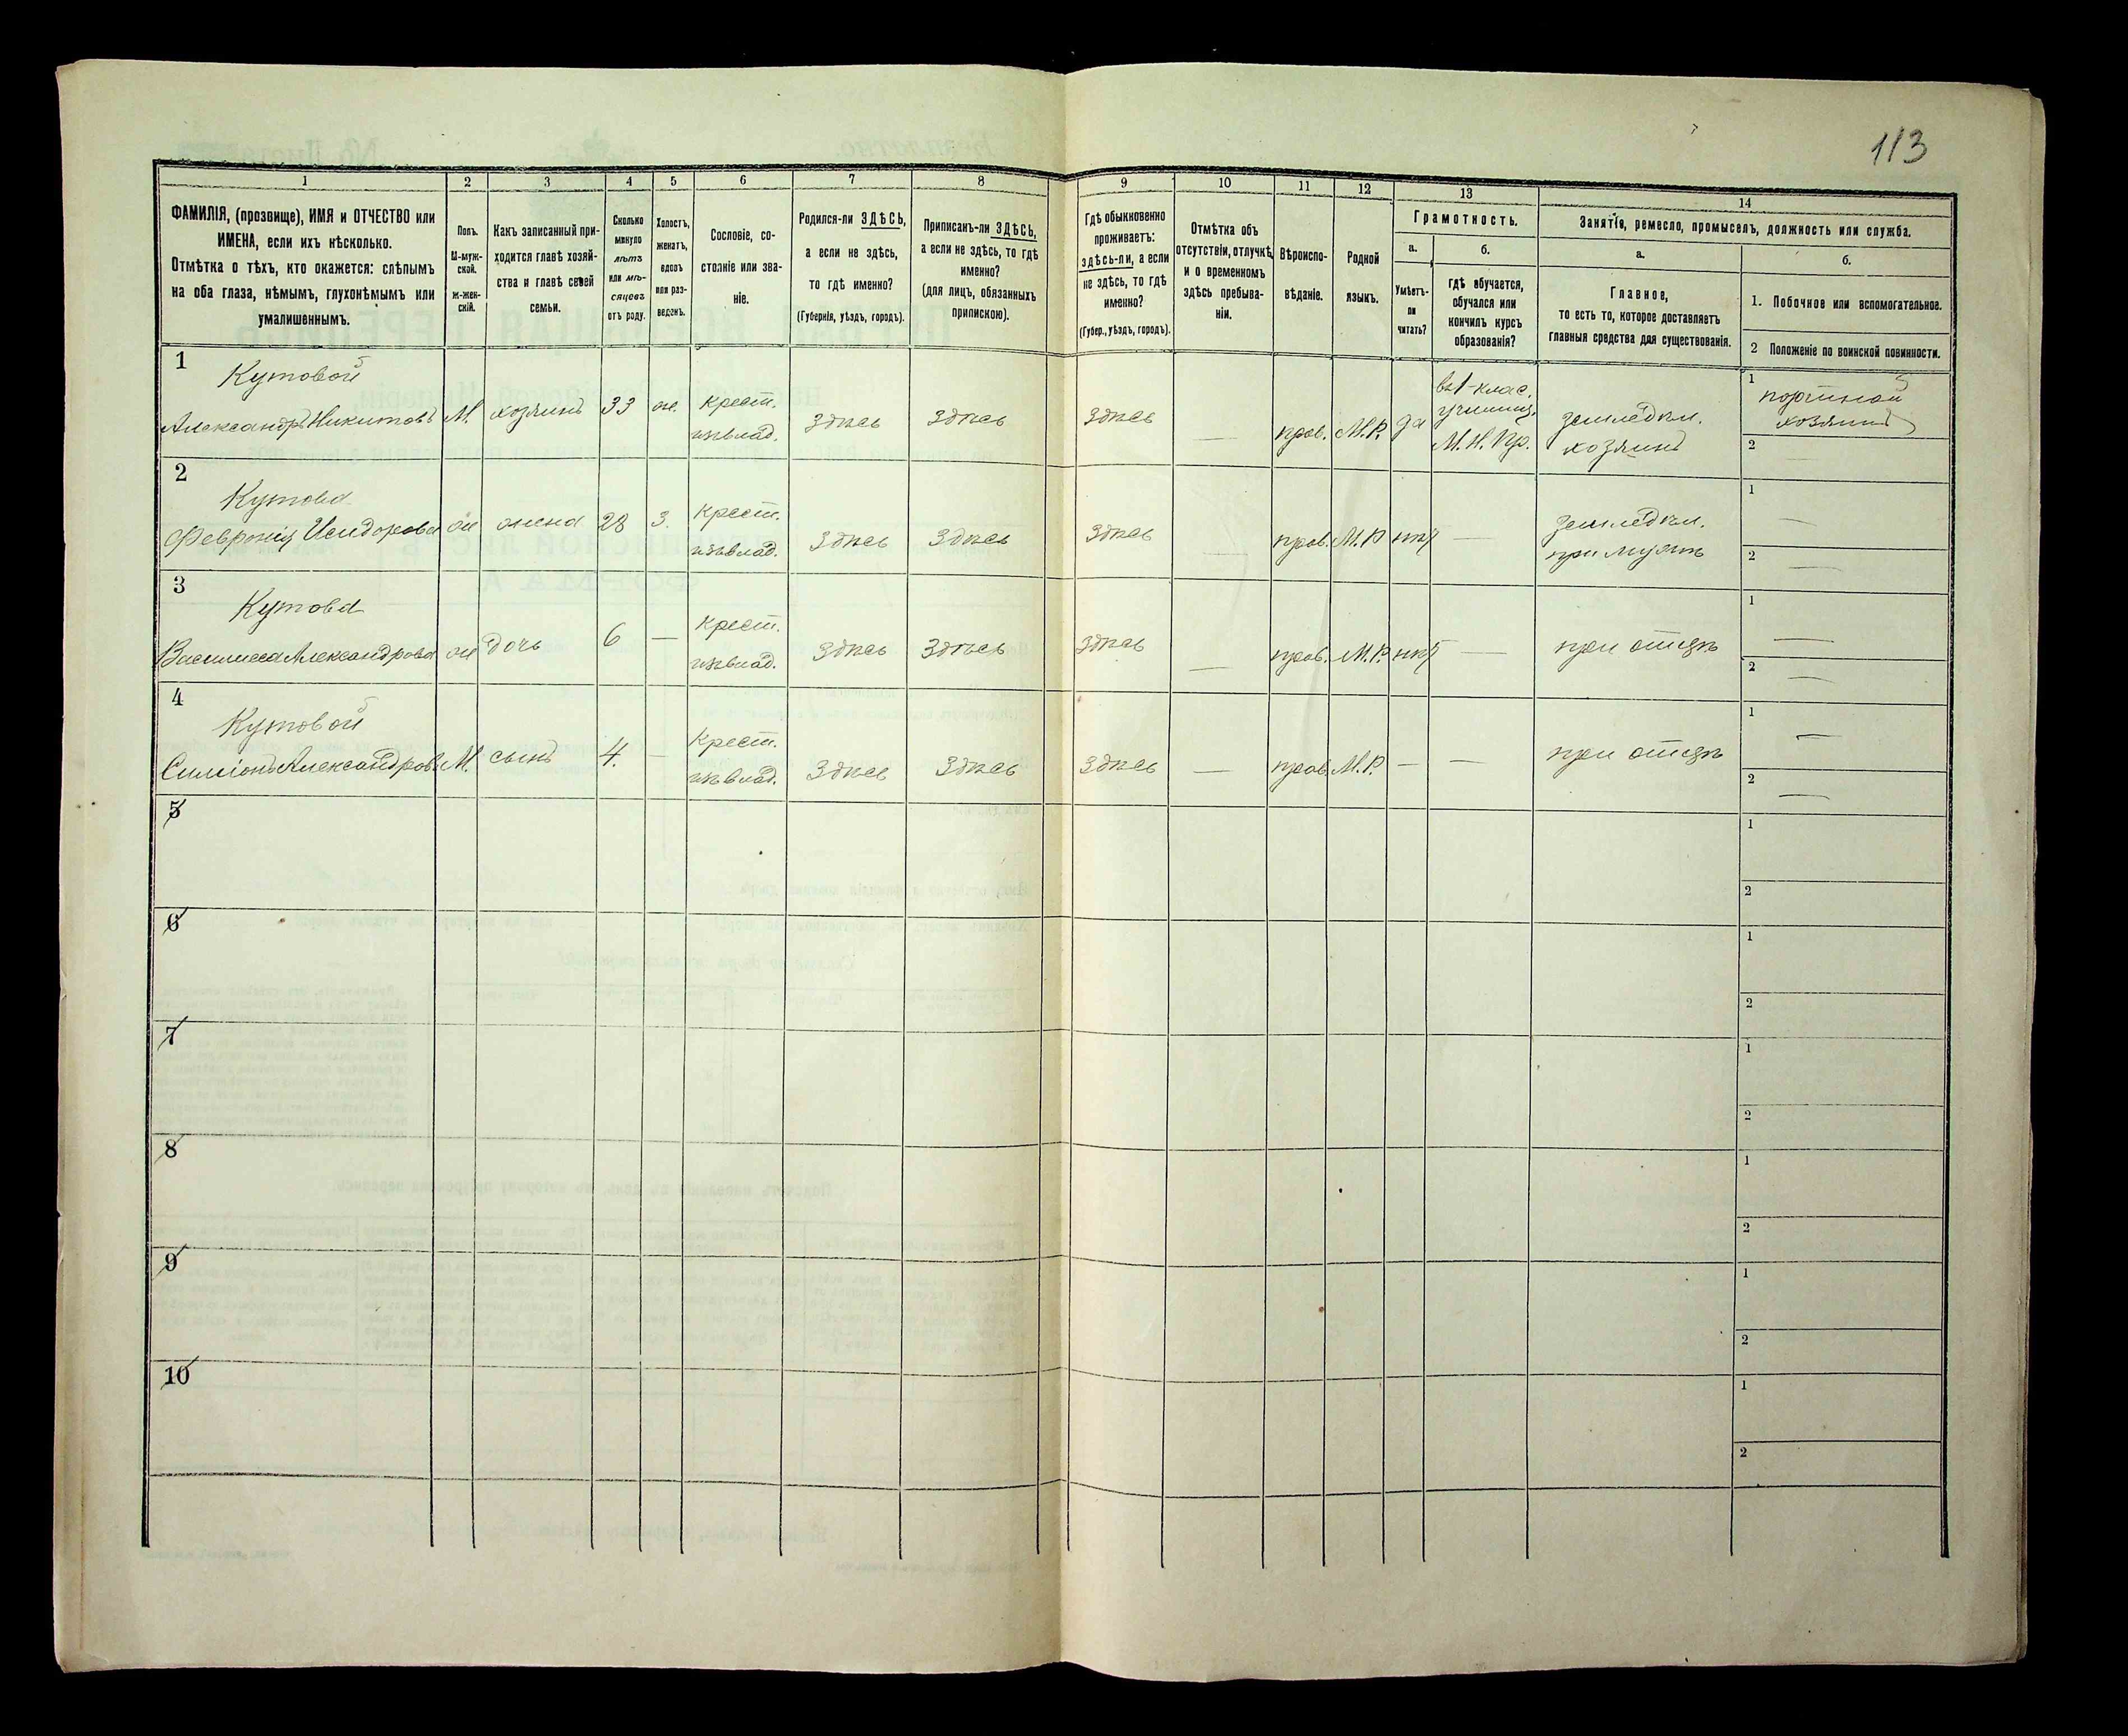 113
1
2
3
4
5
6
7
8
9
10
11
12
13
14
ФАМИЛІЯ, (прозвище), ИМЯ и ОТЧЕСТВО или
ИМЕНА, если ихъ нѣсколько.
Отмѣтка о тѣхъ, кто окажется: слѣпымъ
на оба глаза, нѣмымъ, глухонѣмымъ или
умалишеннымъ.
Полъ.
М-муж-
ской.
ж-жен-
скій.
Какъ записанный при-
ходится главѣ хозяй-
ства и главѣ своей
семьи.
Сколько
минуло
лѣтъ
или мѣ-
сяцевъ
отъ роду.
Холостъ,
женатъ,
вдовъ
или раз-
веденъ.
Сословіе, со-
стояніе или зва-
ніе.
Родился-ли ЗДѢСЬ,
а если не здѣсь,
то гдѣ именно?
(Губернія, уѣздъ, городъ).
Приписанъ-ли ЗДѢСЬ,
а если не здѣсь, то гдѣ
именно?
(для лицъ, обязанныхъ
припискою).
Гдѣ обыкновенно
проживаетъ:
здѣсь-ли, а если
не здѣсь, то гдѣ
именно?
(Губер., уѣздъ, городъ).
Отмѣтка объ
отсутствіи, отлучкѣ,
и о временномъ
здѣсь пребыва-
ніи.
Вѣроиспо-
вѣданіе.
Родной
языкъ.
Грамотность.
а.
Умѣетъ-
ли
читать?
б.
гдѣ обучается,
обучался или
кончилъ курсъ
образованія?
Занятіе, ремесло, промыселъ, должность или служба.
а.
Главное,
то есть то, которое доставляетъ
главныя средства для существованія.
б.
1. Побочное или вспомогательное.
2 Положеніе по воинской повинности.
1
Кутовой
Александръ Никитовъ М. хозяинъ 33 ж. крест.
изъ влад. здѣсь здѣсь здѣсь — прав. М.Р. да
въ 1-клас.
училищ.
М.Н.Пр.
земледѣл.
хозяинъ
1
портной
хозяинъ
2 —
2
Кутова
Февронія Исидорова ж жена 28 З. крест.
изъ влад. здѣсь здѣсь здѣсь — прав. М.Р нѣт —
земледѣл.
при мужѣ
1 —
2 —
3
Кутова
Василиса Александрова ж дочь 6 — крест.
изъ влад. здѣсь здѣсь здѣсь — прав. М.Р. нѣт — при отцѣ
1 —
2 —
4
Кутовой
Симіонъ Александров. М. сынъ 4. — крест.
изъ влад. здѣсь здѣсь здѣсь — прав. М.Р. — — при отцѣ
1 —
2 —
5
1
2
6
1
2
7
1
2
8
1
2
9
1
2
10
1
2